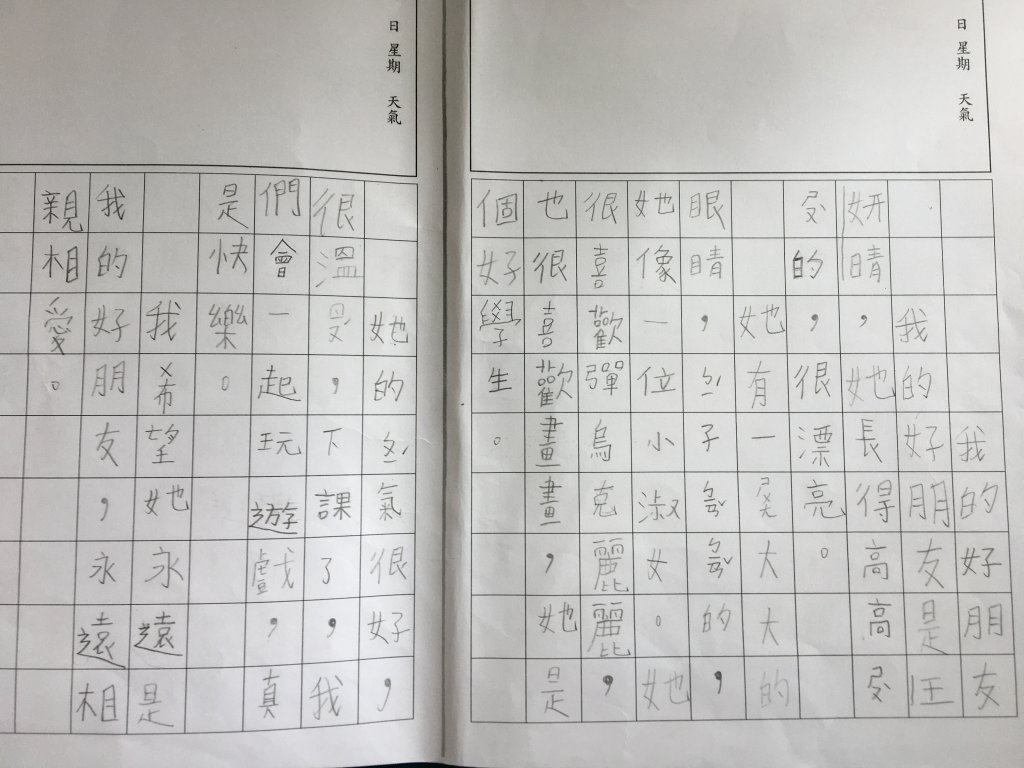 日 星期 天氣
我的好朋友
我的好朋友是汪
妍晴，她長得高高ㄕㄡ
ㄕㄡ的，很漂亮。
她有一ㄕㄨㄤ大大的
眼睛，子的，
她像一位小淑女。她
很喜歡彈烏克麗麗，
也很喜歡畫畫，她是
個好學生。
日 星期 天氣
她的氣很好，
很溫，下課了，我
們會一起玩遊戲，真
是快樂。
我希望她永遠是
我的好朋友，永遠相
親相愛。